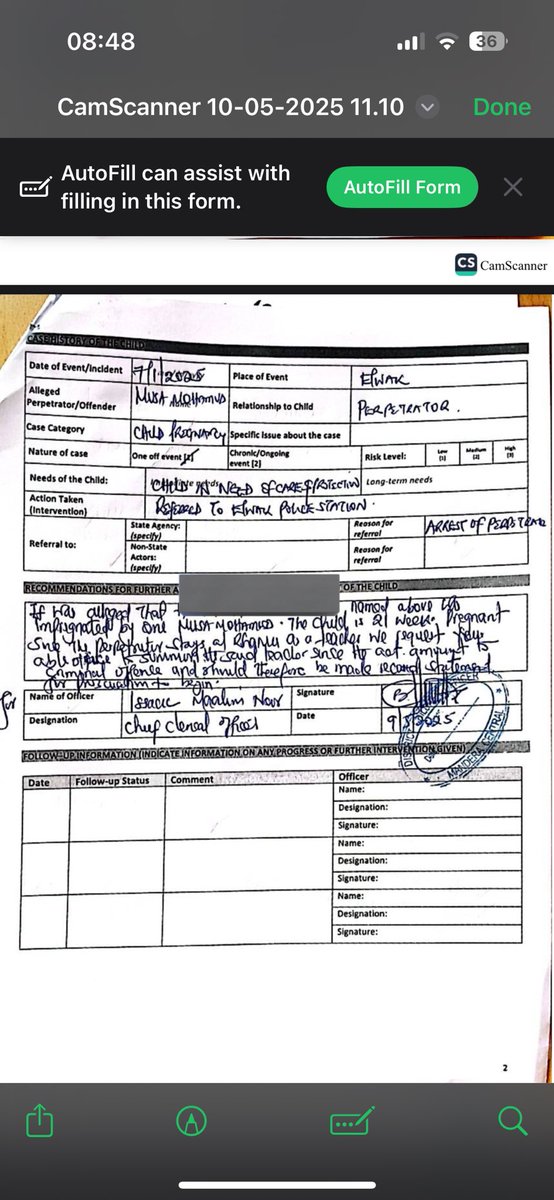 08:48
36
CamScanner 10-05-2025 11.10
Done
AutoFill can assist with
filling in this form.
AutoFill Form
CS CamScanner
CASE HISTORY OF THE CHILD
Date of Event/Incident 7/1/2025 Place of Event Elwak
Alleged Perpetrator/Offender MUSA MOHAMUD Relationship to Child PERPETRATOR.
Case Category CHILD PREGNANCY Specific Issue about the case
Nature of case One off event Chronic/Ongoing event [2] Risk Level: Low [1] Medium [2] High [3]
Needs of the Child: CHILD IN NEED OF CARE & PROTECTION Long-term needs
Action Taken (Intervention) REFERRED TO ELWAK POLICE STATION.
Referral to: State Agency: (specify) Reason for referral ARREST OF PERPETRATOR
Non-State Actors: (specify) Reason for referral
RECOMMENDATIONS FOR FURTHER A OF THE CHILD
It was alleged that named above
impregnated by one MUSA MOHAMUD. The child is 21 weeks pregnant
the perpetrator stays at as a teacher we request your
able office to the said teacher since the act amount to
criminal offence and should therefore be made record statement
for begin.
for
Name of Officer Maalim Noor Signature
Designation Chief Clerical Officer Date 9/5/2025
DISTRICT OFFICER
MANDERA CENTRAL
FOLLOW-UP INFORMATION (INDICATE INFORMATION ON ANY PROGRESS OR FURTHER INTERVENTION GIVEN)
Date Follow-up Status Comment Officer
Name:
Designation:
Signature:
Name:
Designation:
Signature:
Name:
Designation:
Signature:
2